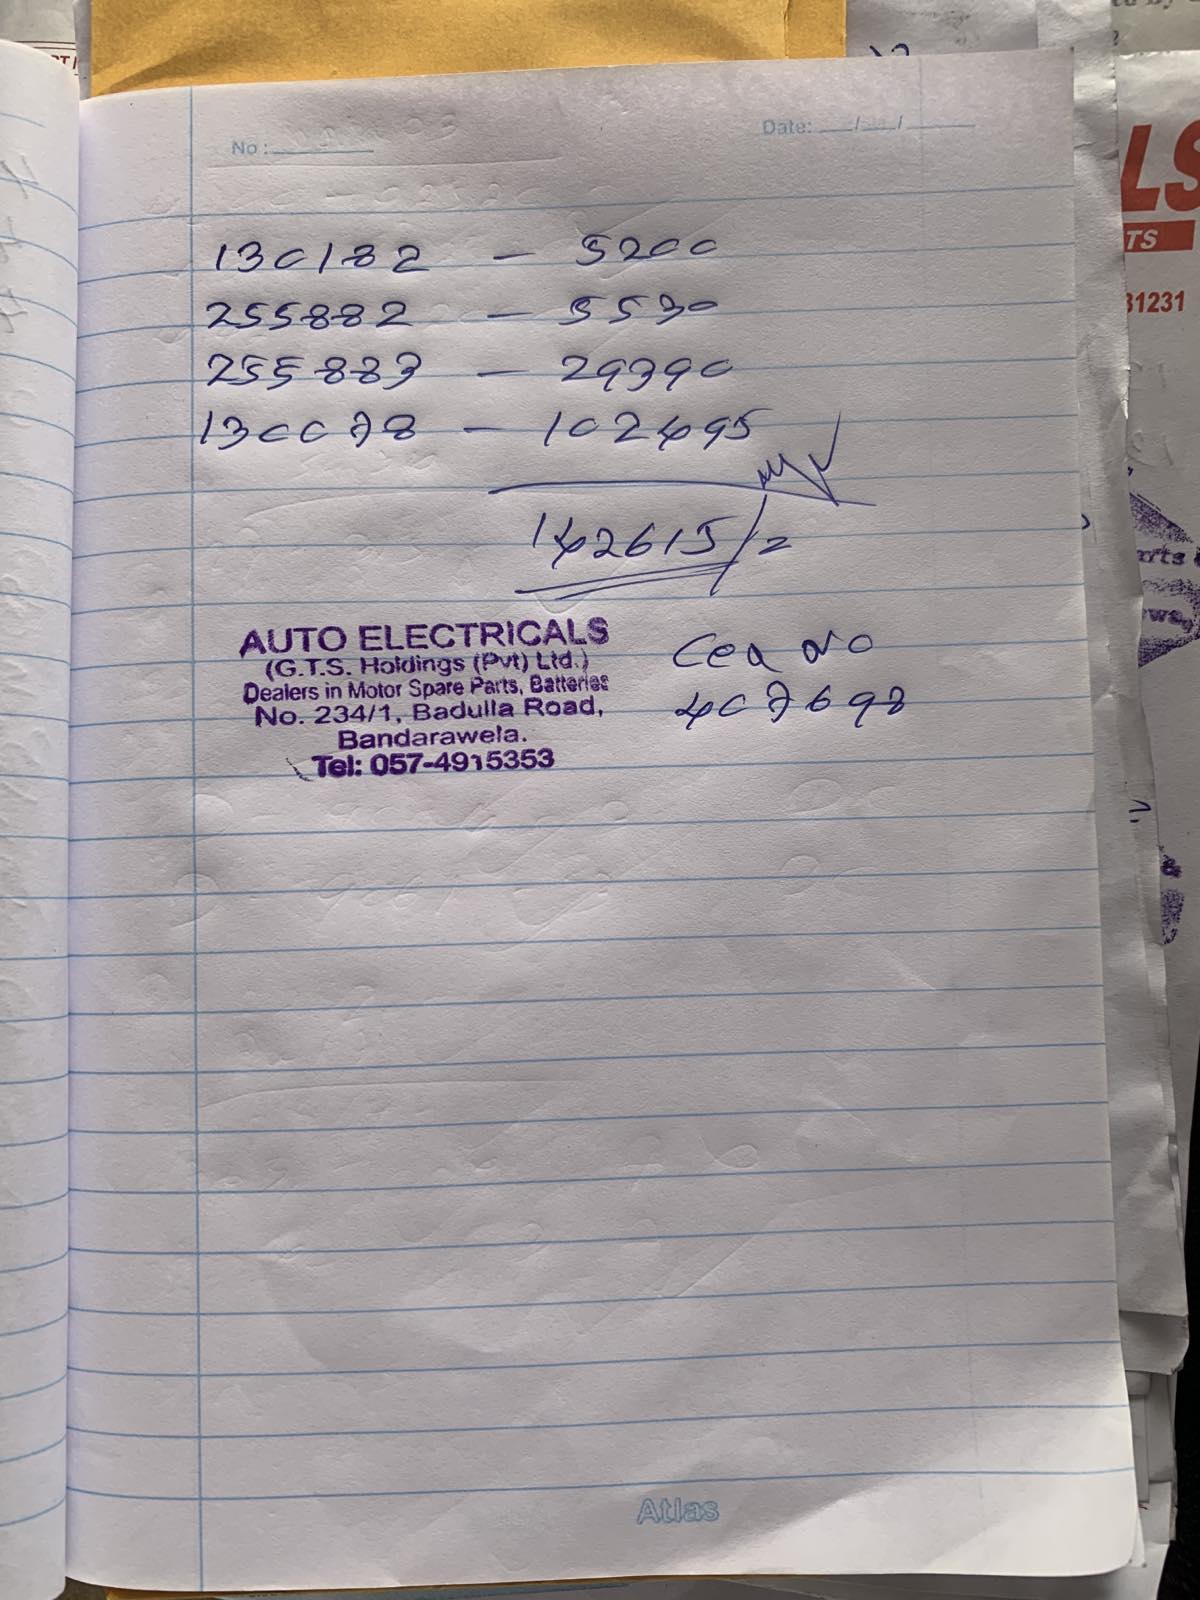 No :
Date: / /
130182 - 5200
255882 - 5530
255883 - 29390
130078 - 102495
142615/=
AUTO ELECTRICALS
(G.T.S. Holdings (Pvt) Ltd.)
Dealers in Motor Spare Parts, Batteries
No. 234/1, Badulla Road,
Bandarawela.
Tel: 057-4915353
NO
407698
Atlas
LS
TS
31231